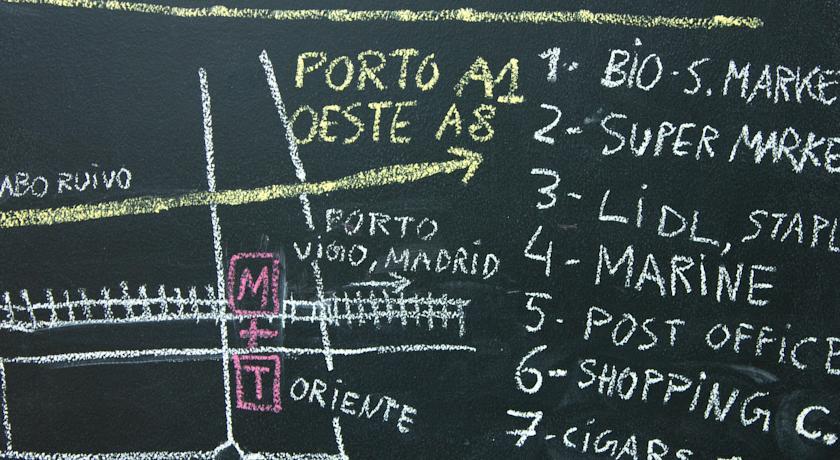 PORTO A1
OESTE A8
ABO RUIVO
PORTO
VIGO, MADRID
M
+
T
ORIENTE
1- BIO-S. MARKE
2- SUPER MARKE
3- LIDL, STAPL
4- MARINE
5- POST OFFICE
6- SHOPPING C.
7- CIGARS